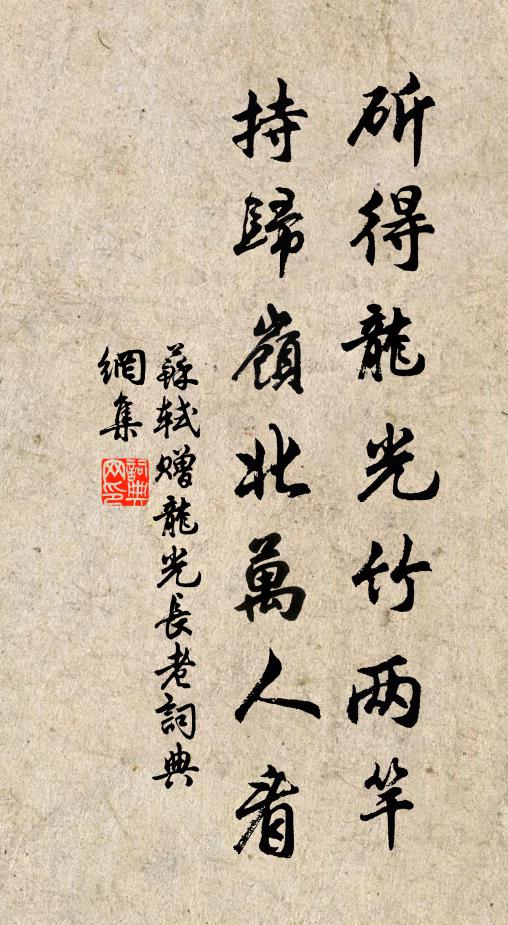 斫得龍光竹两竿
持歸嶺北萬人看
蘇軾贈龍光長老詞典
網集
詞典网印